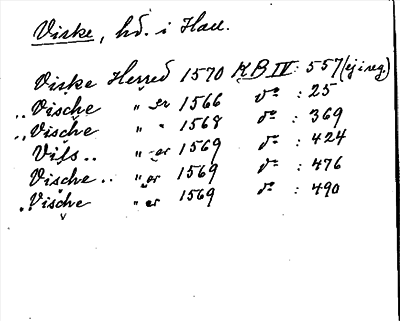 Viske, hd. i Hall.
Viske Herred 1570 KB IV: 557 (ej i reg.)
„Vische „ er 1566 do : 25
„Vische „ " 1568 do : 369
Vifs.. „ er 1569 do : 424
Vische.. „ er 1569 do : 476
„Vische „ er 1569 do : 490